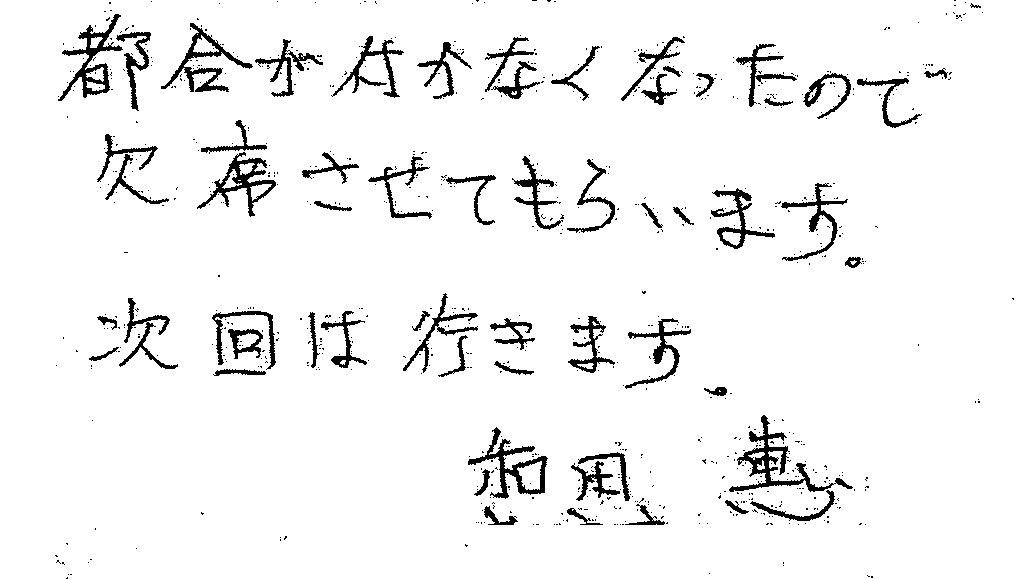 都合が付かなくなったので
欠席させてもらいます。
次回は行きます。
恵